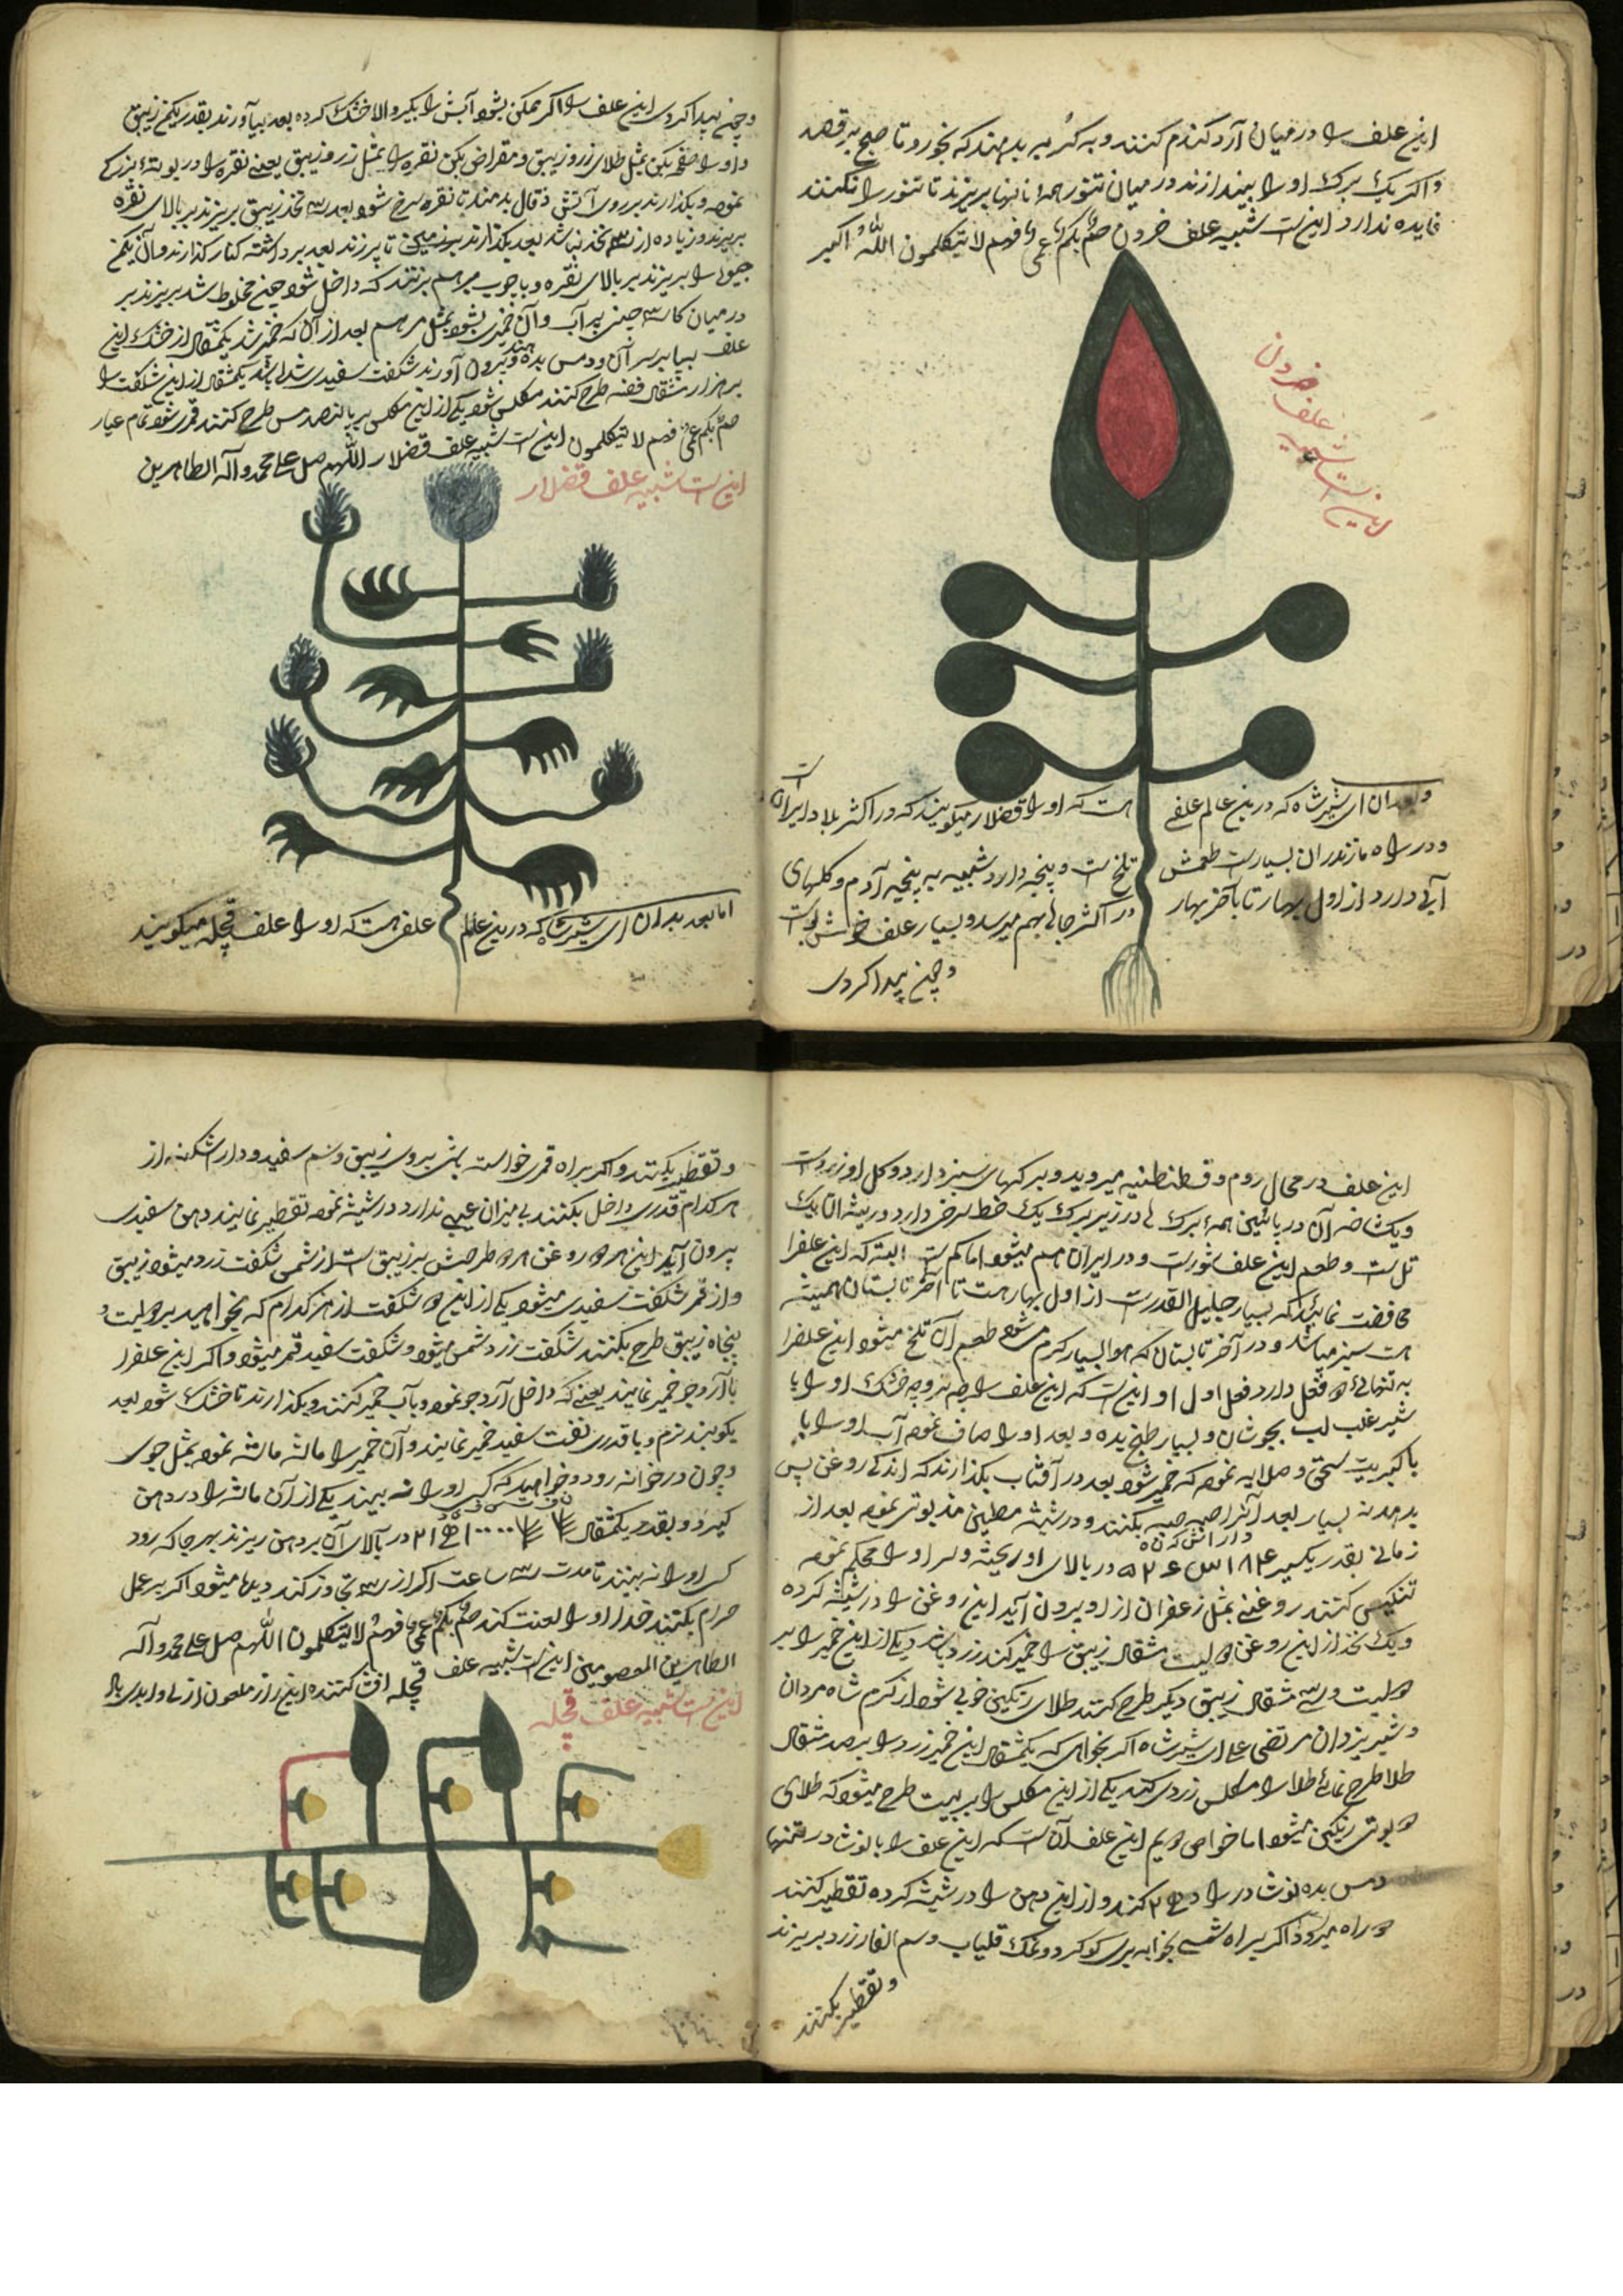 این علف را در میان آرد گندم کنند و به گربه بدهند که بخورد تا صبح برقصد
و اگر یک برگ او را بیندازند در میان تنور همه نانها بریزند تا تنور را نکنند
فایده ندارد این است شبیه علف خردون صمٌ بکمٌ عمیٌ فهم لا یتکلمون اللّٰه اکبر
این است شبیه علف خردون
و بدان ای شیر شاه که در این عالم علفی هست که او را قضلار میگویند که در اکثر بلاد ایران است
و در راه مازندران بسیار است طعمش تلخ است و پنجه دارد شبیه به پنجه آدم و گلهای
آبی دارد از اول بهار تا بآخر بهار در اکثر جائی بهم میرسد و بسیار علف خوش است
و چون پیدا کردی
و چون پیدا کردی این علف را اگر ممکن بشود آبش را بگیر و الا خشک کرده بعد بیاورند بقدر یکمن زیبق
و او را صفحه بکن بمثل طلای زر و زیبق و مقراض بکن نقره را بمثل زر و زیبق یعنی نقره را در بوته بزرگ
نموده و بگذارند بر روی آتش ذقال بدمند تا نقره سرخ شود بعد سه نخد زیبق بریزند بر بالای نقره
بریزند و زیاده از سه نخد نباشد بعد بگذارند تا بپرزند بعد برداشته کنار گذارند و آن یکمن
جیوه را بریزند بر بالای نقره و با چوب برهم بزنند که داخل شود چون مخلوط شد بریزند بر
در میان کاسه چینی پر آب و آن خمیری بشود بمثل مرهم بعد از آن که خمیر شد یکمثقال از خشک این
علف بیا بر سر آن و دمس بده و بیرون آورند شگفت سفیدی شده باشد یکمثقال از این شگفت را
بر هزار مثقال فضه طرح کنند مکلس شود یکی از این مکلس بر پانصد مس طرح کنند قمر شود تمام عیار
صمٌ بکمٌ عمیٌ فهم لا یتکلمون این است شبیه علف قضلار اللّٰهم صل علی محمد و آله الطاهرین
این است شبیه علف قضلار
اما بعد بدان ای شیر شاه که در این عالم علفی هست که او را علف قچله میگویند
این علف در محال روم و قسطنطنیه میروید و برگهای سبز دارد و گل او زرد است
و یک شاخه آن در پائین همه برگ ها در زیر برگ یک خط سرخ دارد و ریشه آن یک
تل است و طعم این علف شور است و در ایران هم میشود اما کم است البته که این علفرا
محافضت نمائید که بسیار جلیل القدر است از اول بهار هست تا آخر تابستان همیشه
هست سبز میباشد و در آخر تابستان که هوا بسیار گرم میشود طعم آن تلخ میشود این علفرا
به تنهائی دو فعل دارد فعل اول او این است که این علف را چه تر و چه خشک او را با
شیر غلب لب بجوشان و بسیار طبخ بده و بعد او را صاف نموده آب او را با
با کبریت سحق و صلایه نموده که خمیر شود بعد در آفتاب بگذارند که اندکی روغن پس
بدهد نه بسیار بعد آنرا حبه حبه بکنند و در شیشه مطین مذبوتر نموده بعد از
زمانی بقدر یکسیر در بالای او ریخته و سر او را محکم نموده
تنکیس کنند روغنی بمثل زعفران از او بیرون آید این روغن را در شیشه کرده
و یک نخد از این روغن دویست مثقال زیبق را خمیر کند زرد باشد یکی از این خمیر را بر
دویست و سه مثقال زیبق دیگر طرح کنند طلای رنگین خوبی شود از کرم شاه مردان
و شیر یزدان مرتضی علی ای شیر شاه اگر بخواهی که یکمثقال این خمیر زرد را بر صد مثقال
طلا طرح نمائی طلا را مکلس زردی کند یکی از این مکلس را بر بیست طرح میشود که طلای
دو بوتی رنگین میشود اما خواص دویم این علف آن است که این علف را با نوشادر
دمس بده نوشادر را کنند و از این دهن را در شیشه کرده تقطیر کنند
دو راه میرود اگر براه شمسی بخواهی گوگرد و نمک قلیاب و سم الفار زرد بریزند
و تقطیر بکنند
و تقطیر بکنند و اگر براه قمری خواسته باشی بروی زیبق و سم سفید و دار اشکنه از
هر کدام قدری داخل بکنند بی میزان عیبی ندارد در شیشه نموده تقطیر نمایند دهن سفیدی
بیرون آید این هر دو روغن هر دو طرحش بر زیبق است از شمسی شگفت زرد میشود زیبق
و از قمر شگفت سفیدی میشود یکی از این دو شگفت از هر کدام که بخواهید بر دویست و
پنجاه زیبق طرح بکنند شگفت زرد شمس میشود و شگفت سفید قمر میشود و اگر این علفرا
با آرد جو خمیر نمایند یعنی که داخل آرد جو نموده و بآب خمیر کنند و بگذارند تا خشک شود بعد
بکوبند نرم و با قدری نفت سفید خمیر نمایند و آن خمیر را ماشه ماشه نموده بمثل جوی
و چون در خوانه رود و خواهید که کسی او را نه بیند یکی از آن ماشه را در دهن
گیرد و بقدر یکمثقال در بالای آن بر دهن ریزند بهر جا که رود
کس او را نه بینند تا مدت سه ساعت اگر از سه تجاوز کند دیدها میشود اگر بر عمل
حرام بکنند خدا او را لعنت کند صمٌ بکمٌ عمیٌ فهم لا یتکلمون اللّٰهم صل علی محمد و آله
الطاهرین المعصومین این است شبیه علف قچله افشا کننده این راز ملعون ازلی و ابدی باد
این است شبیه علف قچله